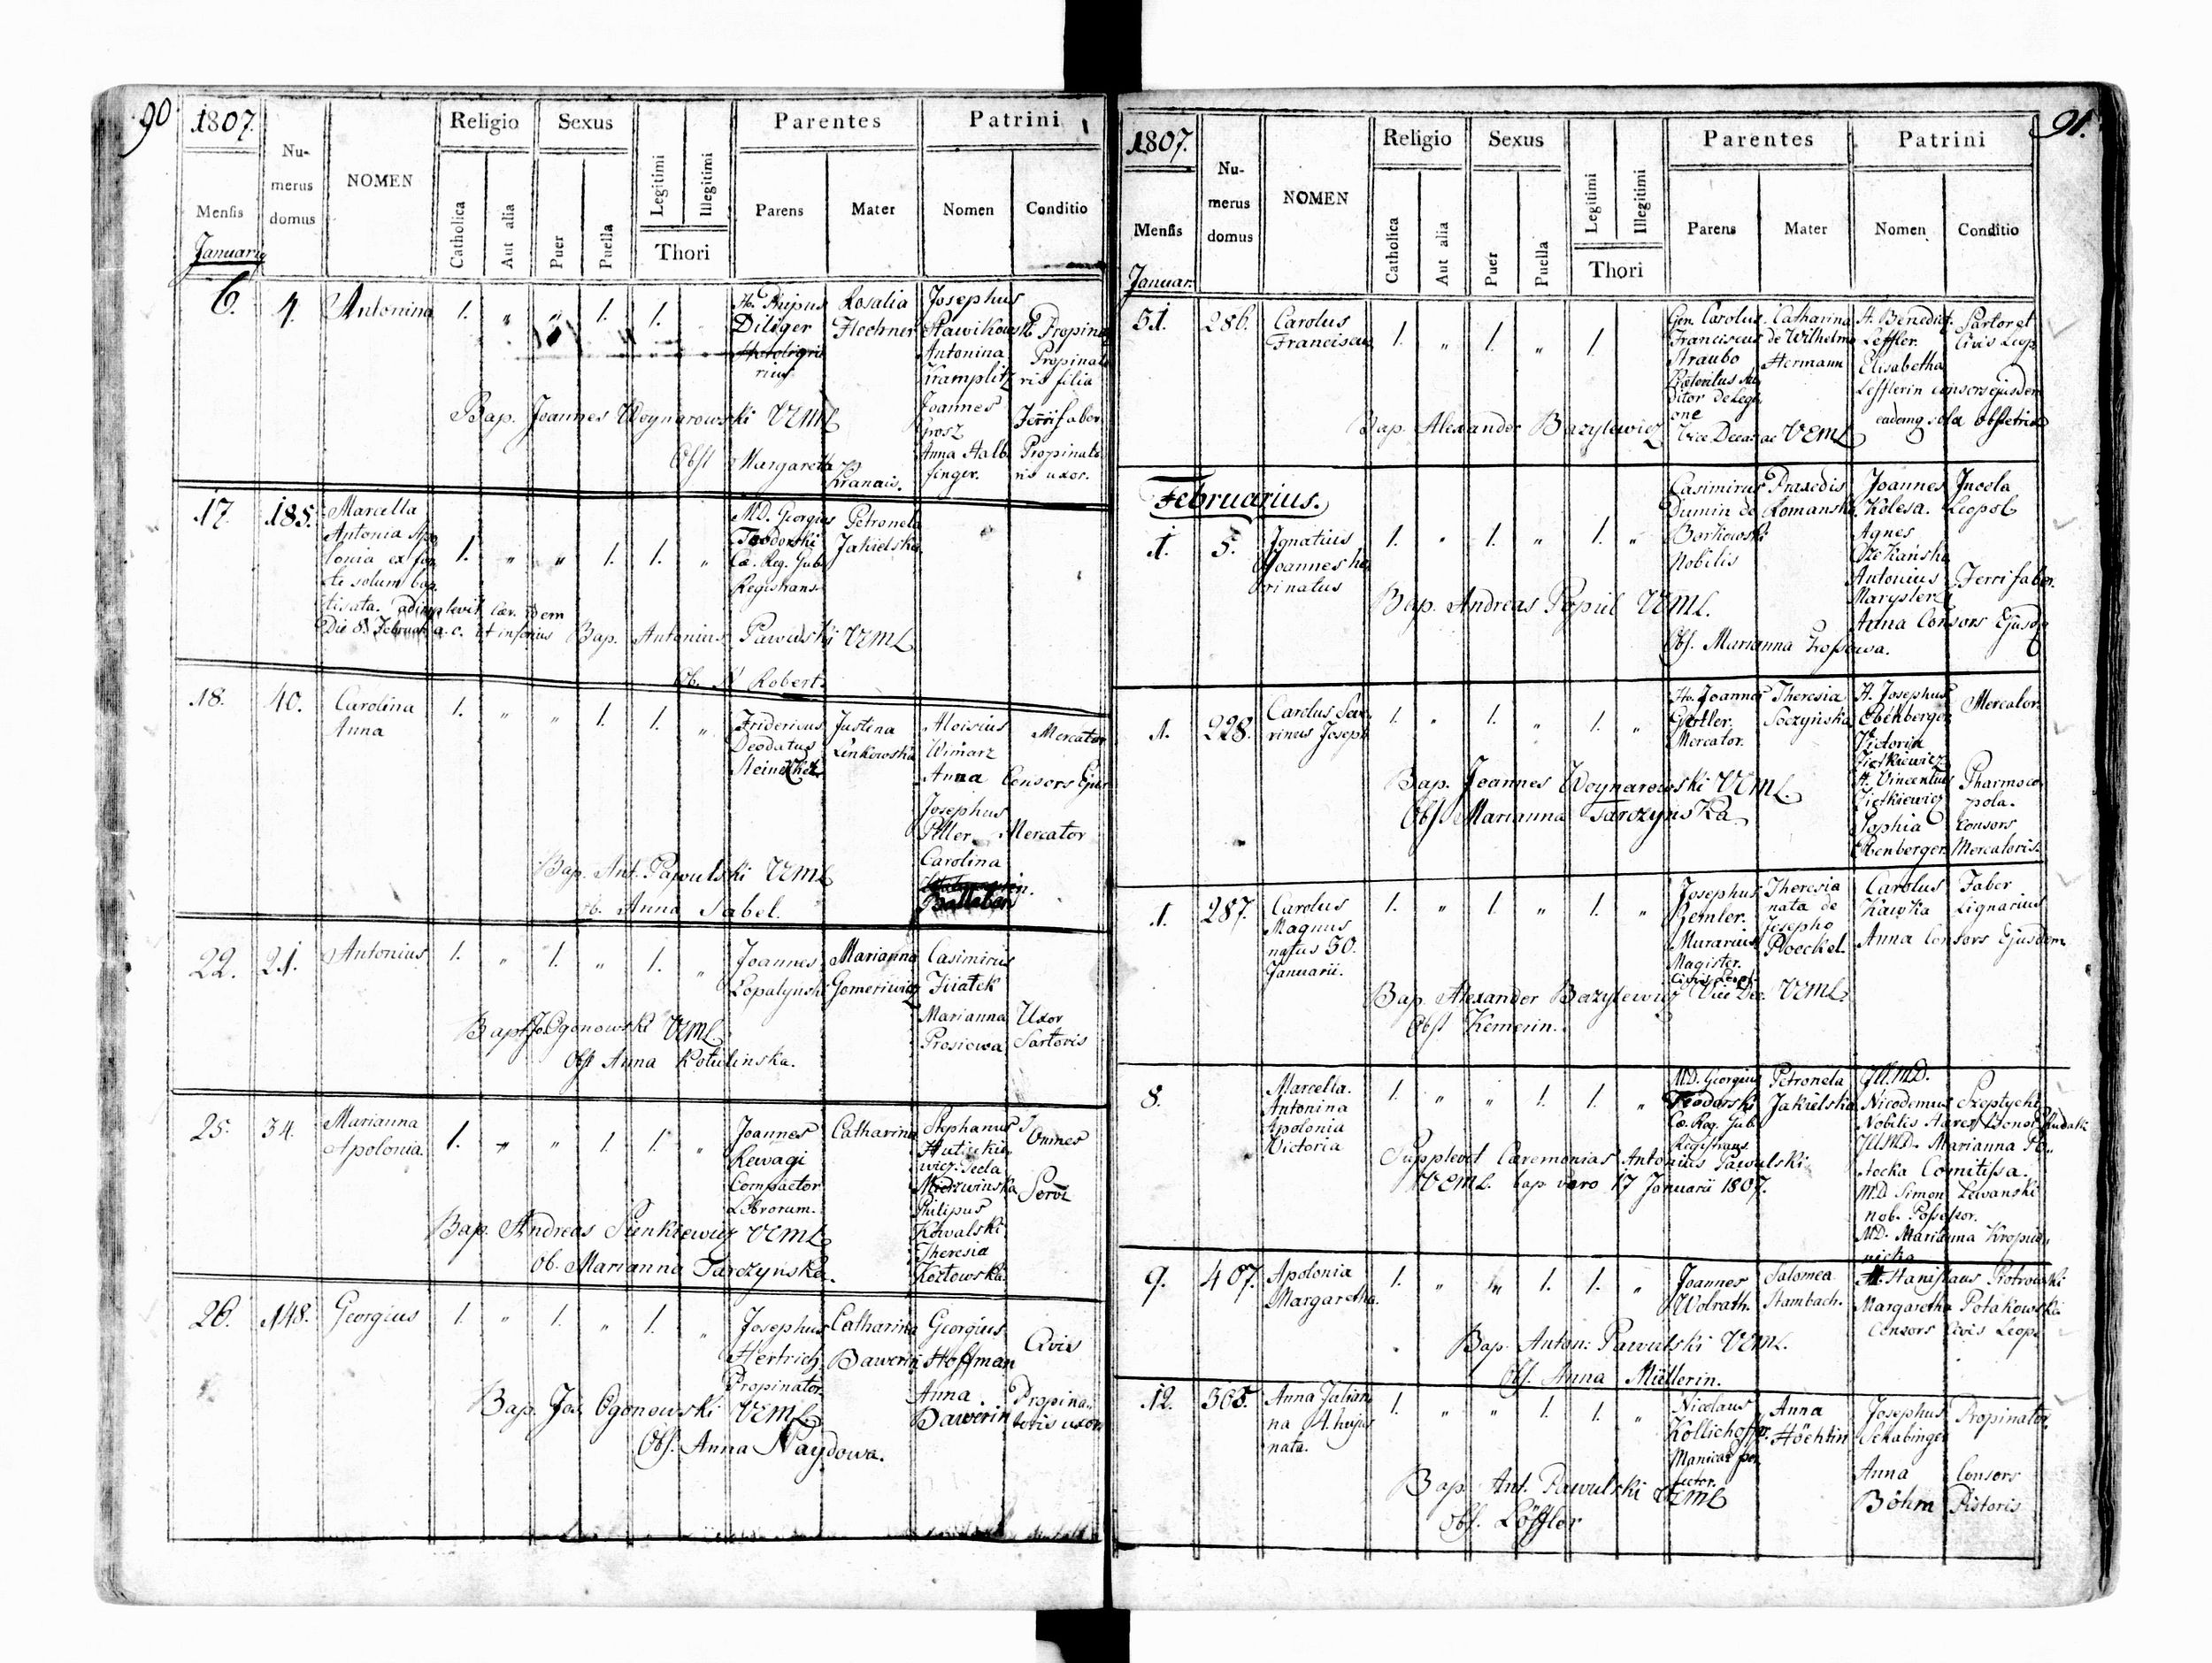 90
1807.
Mensis
Januarij
Numerus domus
NOMEN
Religio
Catholica
Aut alia
Sexus
Puer
Puella
Legitimi
Illegitimi
Thori
Parentes
Parens
Mater
Patrini
Nomen
Conditio
6. 4. Antonina 1. „ „ 1. 1.
Rosalia
Flechner
Josephus
Antonina
Kramplitz
Joannes
Grosz
Anna Halb
singer.
Propinato
ris filia
Ferri faber
Propinato
ris uxor.
Bap. Joannes Woynarowski VEML
Obst Margaretha
17. 185. Marcella
Antonia Apo
lonia ex fon
te solum bap
tisata. adimplevit Cær. idem
Die 8 Februar a. c. ut inferius
1. „ „ 1. 1. „
MD. Georgius
Teodorski
Cæ. Reg. Gub.
Registrans.
Petronela
Jakielska
Bap. Antonius Pawulski VEML
Ob. Robert
18. 40. Carolina
Anna
1. „ „ 1. 1. „
Fridericus
Deodatus
Justina
Linkowska
Aloisius
Anna Consors Ejus
Mercator
Josephus
Piller Mercator
Carolina
Bap. Ant. Pawulski VEML
Ob. Anna Sabel.
22. 21. Antonius 1. „ 1. „ 1. „
Joannes
Lopatynski
Marianna
Casimirus
Fiiatek
Marianna
Prosiowa
Uxor
Sartoris
Bap. Jo. Ogonowski VEML
Obst Anna Kotulinska.
25. 34. Marianna
Apolonia
1. „ „ 1. 1. „
Joannes
Rewagi
Compactor
Librorum.
Catharina
Stephanus
Tecla
Mierzwinska
Philipus
Kowalski
Theresia
Kozlowska
Omnes
Servi
Bap. Andreas Sienkiewicz VEML
Ob. Marianna Tarczynska.
26. 148. Georgius 1. „ 1. „ 1. „
Josephus
Hertrich
Propinator
Catharina
Bawerin
Georgius
Hoffman
Anna
Bawerin
Civis
Propina
toris uxor
Bap. Jos. Ogonowski VEML
Obs. Anna Naydowa.
91.
1807.
Mensis
Januar.
Numerus domus
NOMEN
Religio
Catholica
Aut alia
Sexus
Puer
Puella
Legitimi
Illegitimi
Thori
Parentes
Parens
Mater
Patrini
Nomen
Conditio
31. 286. Carolus
Franciscus
1. „ 1. „ 1.
Gen. Carolus
Franciscus
Straubo
Catharina
de Wilhelmo
Hermann
H. Benedict.
Leffler.
Elisabetha
Lefflerin consors ejusdem
Sartor et
Civis Leop.
Bap. Alexander Bazylewicz Vice Decanac VEML
Februarius.
1. 5. Ignatius
Joannes he
ri natus
1. „ 1. „ 1. „
Casimirus
Dunin de
Borkowski
Nobilis
Praxedis
Romanska
Joannes
Kolesa.
Agnes
Antonius
Anna Consors Ejusde
Incola
Leopol
Ferri faber.
Bap. Andreas Popiel VEML.
Obs. Marianna
1. 228. Carolus Seve
rinus Joseph
1. „ 1. „ 1. „
Ho. Joannes
Mercator.
Theresia
Soczynska
H. Josephus
Ebenberger
Victoria
Zietkiewicz
H. Vincentius
Zietkiewicz
Sophia
Ebenberger
Mercator
Pharmaco
pola.
Consors
Mercatoris.
Bap. Joannes Woynarowski VEML
Obst Marianna Tarczynska
1. 287. Carolus
Magnus
natus 30.
Januarii.
1. „ 1. „ 1. „
Josephus
Zemler.
Murarius
Magister.
Civis Leop.
Theresia
nata de
Josepho
Ploeckel.
Carolus
Kawka
Anna Consors Ejusdem
Faber
Lignarius
Bap. Alexander Bazylewicz Vice Dec. VEML.
Obst Kemerin.
8. Marcella.
Antonina
Apolonia
Victoria
1. „ „ 1. 1. „
MD. Georgius
Teodorski
Cæ. Reg. Gub.
Registrans
Petronela
Jakielska
Ill. MD.
Nicodemus
Ill. MD. Marianna Po
tocka Comitissa.
MD. Simon Lewanski
nob. Possessor.
MD. Marianna Kropiw
nicka
Supplevit Cæremonias Antonius Pawulski
VEML bap vero 17 Januarii 1807.
9. 407. Apolonia
Margaretha.
1. „ „ 1. 1. „
Joannes
Wolrath.
Salomea
Stambach.
H. Stanislaus Piotrowski
Margaretha Potakowska
Consors Civis Leop.
Bap. Anton: Pawulski VEML.
Obs. Anna Müllerin.
12. 365. Anna Julian
na 4. hujus
nata.
1. „ „ 1. 1. „
Nicolaus
Kollichoffer.
Anna
Höchtin
Josephus
Schabinger
Anna
Böhm
Propinator
Consors
Pistoris
Bap. Ant. Pawulski VEML
Obs. Löffler